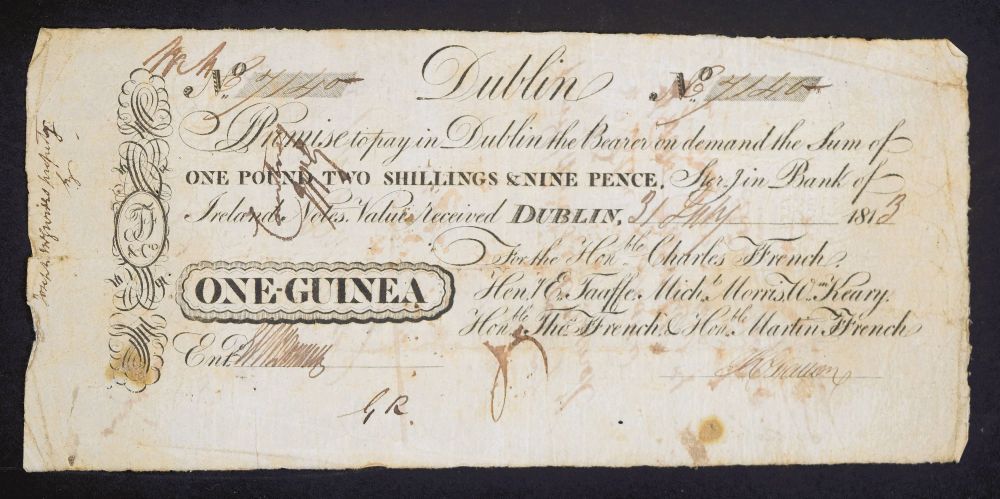 No 7140 Dublin No 7140
I Promise to pay in Dublin the Bearer on demand the Sum of
ONE POUND TWO SHILLINGS & NINE PENCE. Ster.g in Bank of
Ireland Notes. Value Received DUBLIN, 31 July 1813
For the Hon.ble Charles Ffrench,
ONE-GUINEA
Hen.y E. Taaffe. Mich.l Morris. W.m Keary.
Hon.ble Tho.s Ffrench & Hon.ble Martin Ffrench
Ent.d
G R
Ff
& Co